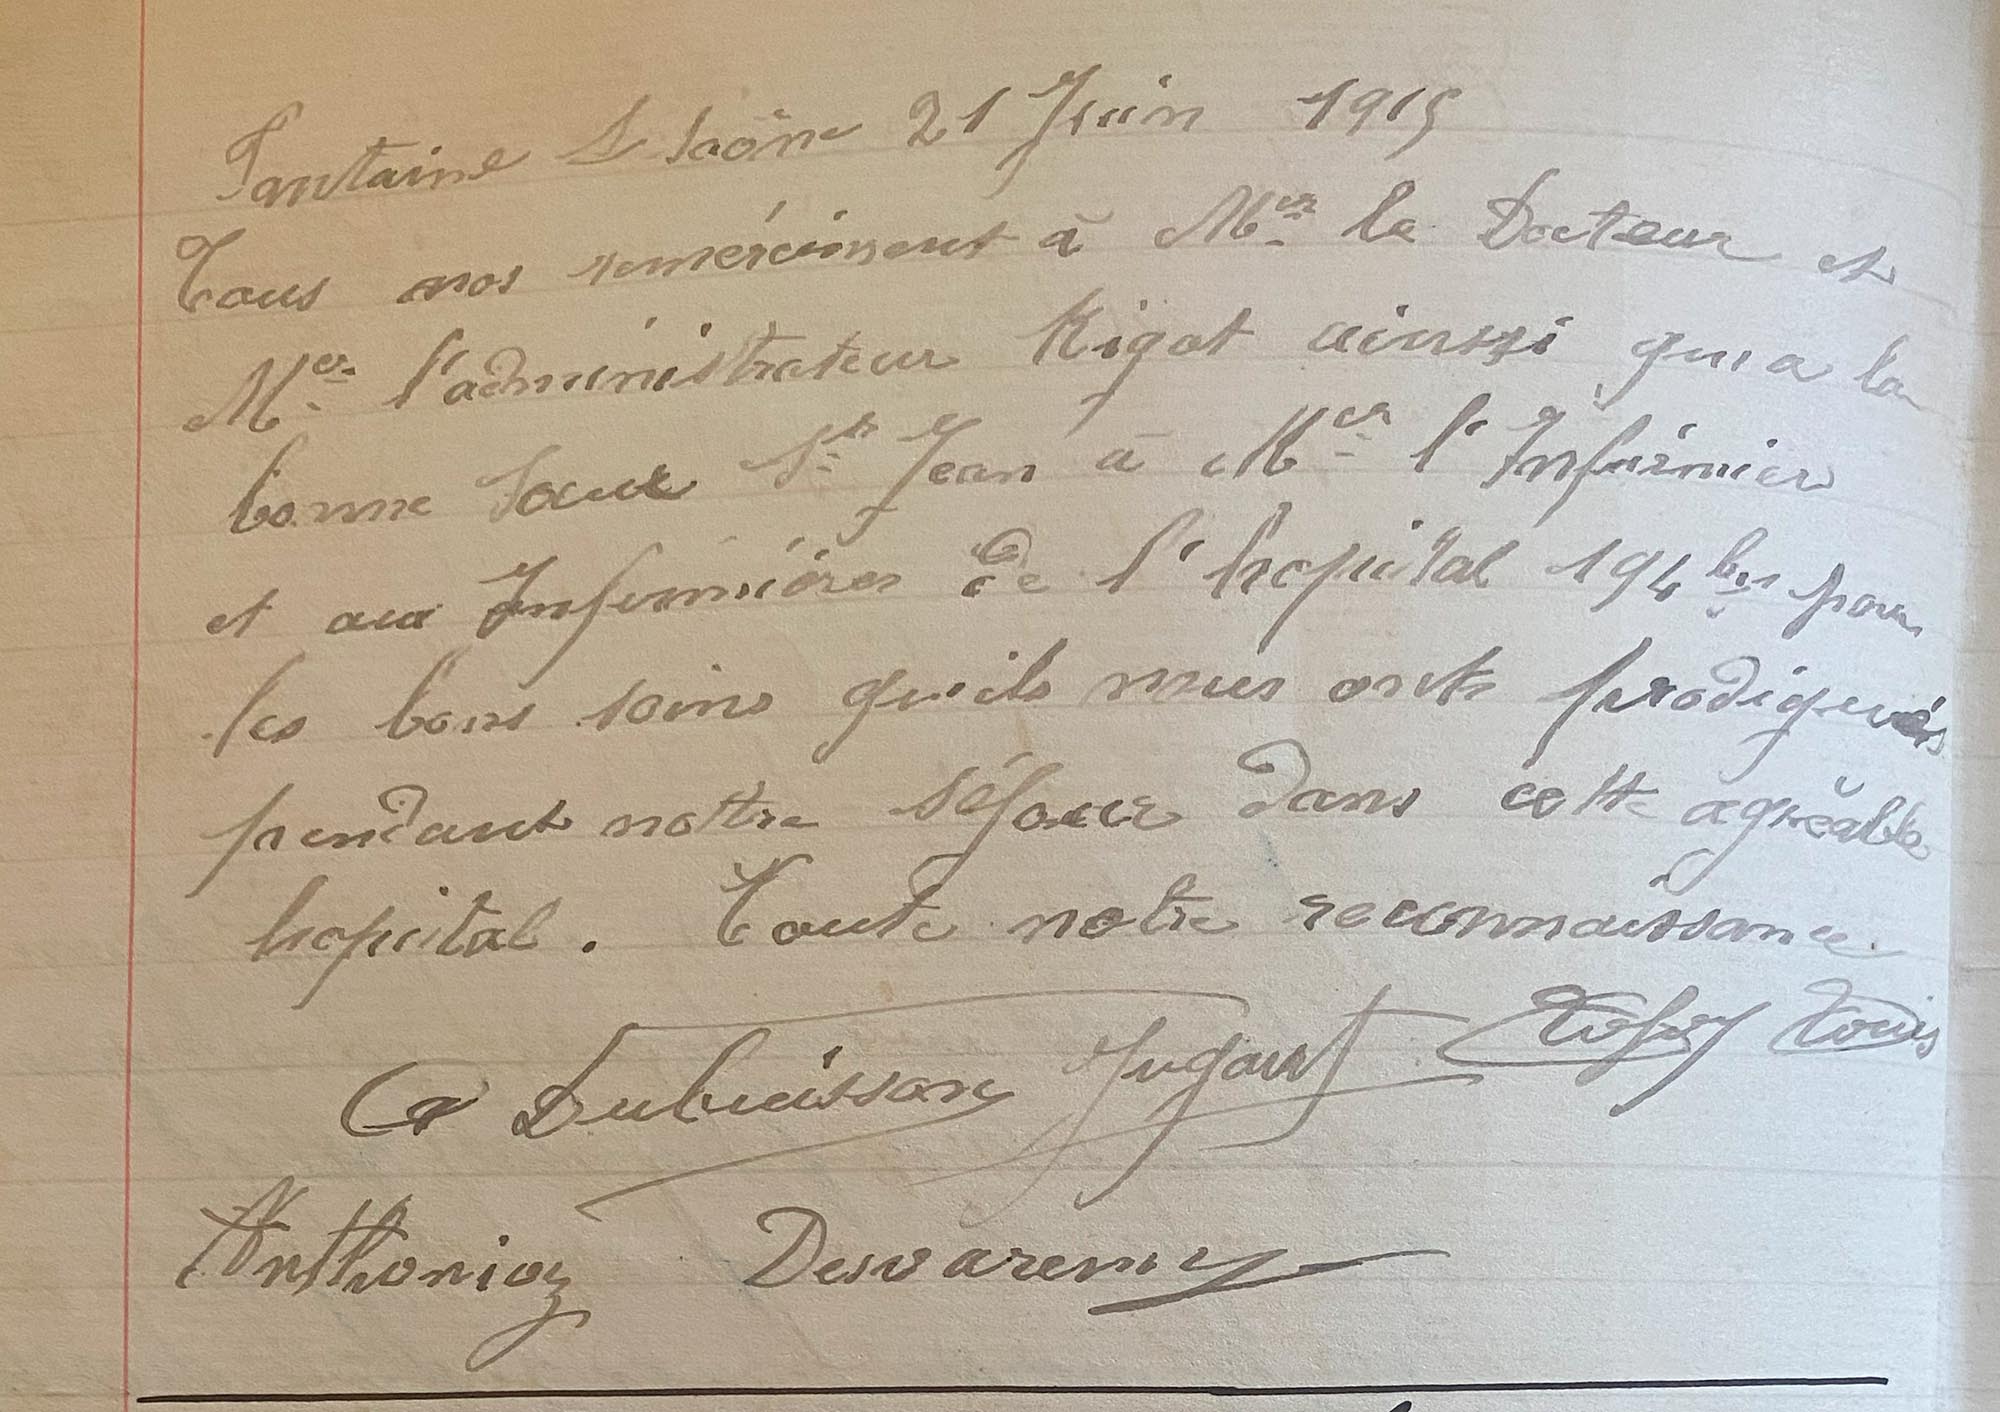 Fontaine S Saône 21 Juin 1915
Tous nos remérciment à Mer le Docteur et
Mer l'administrateur Rigot ainssi qu'a la
bonne Soeur St Jean à Mer l'Infirmier
et aux Infirmières de l'hopital 194 bis pour
les bons soins qu'ils nous onts prodigués
pendant nottre séjour dans cette agréable
hopital. Toute notre reconnaissance
Dubuisson Jugant Louis
Anthonioz Desvaremy